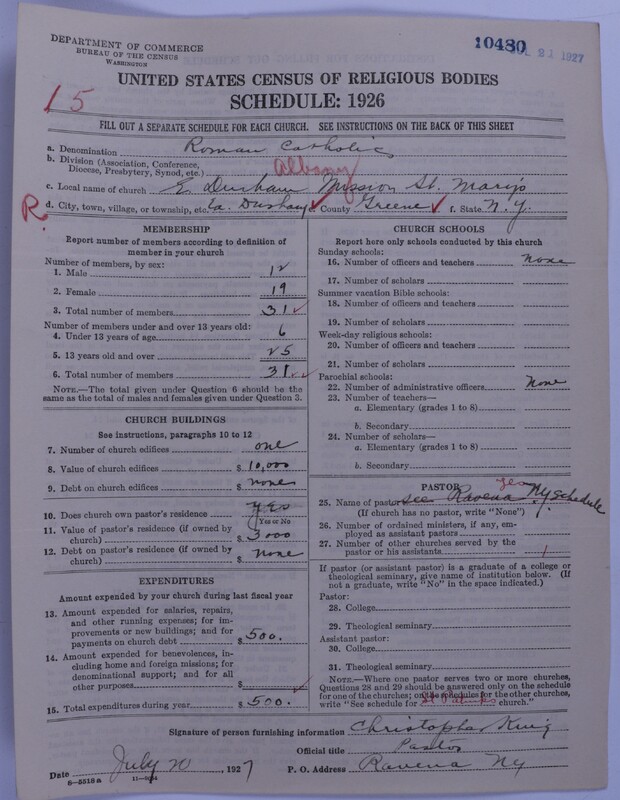 DEPARTMENT OF COMMERCE
BUREAU OF THE CENSUS
WASHINGTON
10480 JUL 21 1927
UNITED STATES CENSUS OF RELIGIOUS BODIES
SCHEDULE: 1926
15
FILL OUT A SEPARATE SCHEDULE FOR EACH CHURCH. SEE INSTRUCTIONS ON THE BACK OF THIS SHEET
a. Denomination Roman Catholic
b. Division (Association, Conference,
Diocese, Presbytery, Synod, etc.) Albany
c. Local name of church E. Durham Mission St. Mary's
R. d. City, town, village, or township, etc. Ea. Durham e. County Greene f. State N.Y.
MEMBERSHIP
Report number of members according to definition of
member in your church
Number of members, by sex:
1. Male 12
2. Female 19
3. Total number of members 31
Number of members under and over 13 years old:
4. Under 13 years of age 6
5. 13 years old and over 25
6. Total number of members 31
NOTE.—The total given under Question 6 should be
same as the total of males and females given under Question 3.
CHURCH BUILDINGS
See instructions, paragraphs 10 to 12
7. Number of church edifices one
8. Value of church edifices $ 10,000
9. Debt on church edifices $ none
10. Does church own pastor's residence yes
Yes or No
11. Value of pastor's residence (if owned by
church) $ 3000
12. Debt on pastor's residence (if owned by
church) $ none
EXPENDITURES
Amount expended by your church during last fiscal year
13. Amount expended for salaries, repairs,
and other running expenses; for im-
provements or new buildings; and for
payments on church debt $ 500.
14. Amount expended for benevolences, in-
cluding home and foreign missions; for
denominational support; and for all
other purposes $
15. Total expenditures during year $ 500.
CHURCH SCHOOLS
Report here only schools conducted by this church
Sunday schools:
16. Number of officers and teachers none
17. Number of scholars
Summer vacation Bible schools:
18. Number of officers and teachers
19. Number of scholars
Week-day religious schools:
20. Number of officers and teachers
21. Number of scholars
Parochial schools:
22. Number of administrative officers None
23. Number of teachers—
a. Elementary (grades 1 to 8)
b. Secondary
24. Number of scholars—
a. Elementary (grades 1 to 8)
b. Secondary
PASTOR
25. Name of pastor see Ravena NY schedule
(If church has no pastor, write "None")
26. Number of ordained ministers, if any, em-
ployed as assistant pastors
27. Number of other churches served by the
pastor or his assistants 1
If pastor (or assistant pastor) is a graduate of a college or
theological seminary, give name of institution below. (If
not a graduate, write "No" in the space indicated.)
Pastor:
28. College
29. Theological seminary
Assistant pastor:
30. College
31. Theological seminary
NOTE.—Where one pastor serves two or more churches,
Questions 28 and 29 should be answered only on the schedule
for one of the churches; on the schedules for the other churches,
write "See schedule for St Patricks church."
Signature of person furnishing information Christopher King
Official title Pastor
Date July 20, 1927 P. O. Address Ravena NY
8—5518a